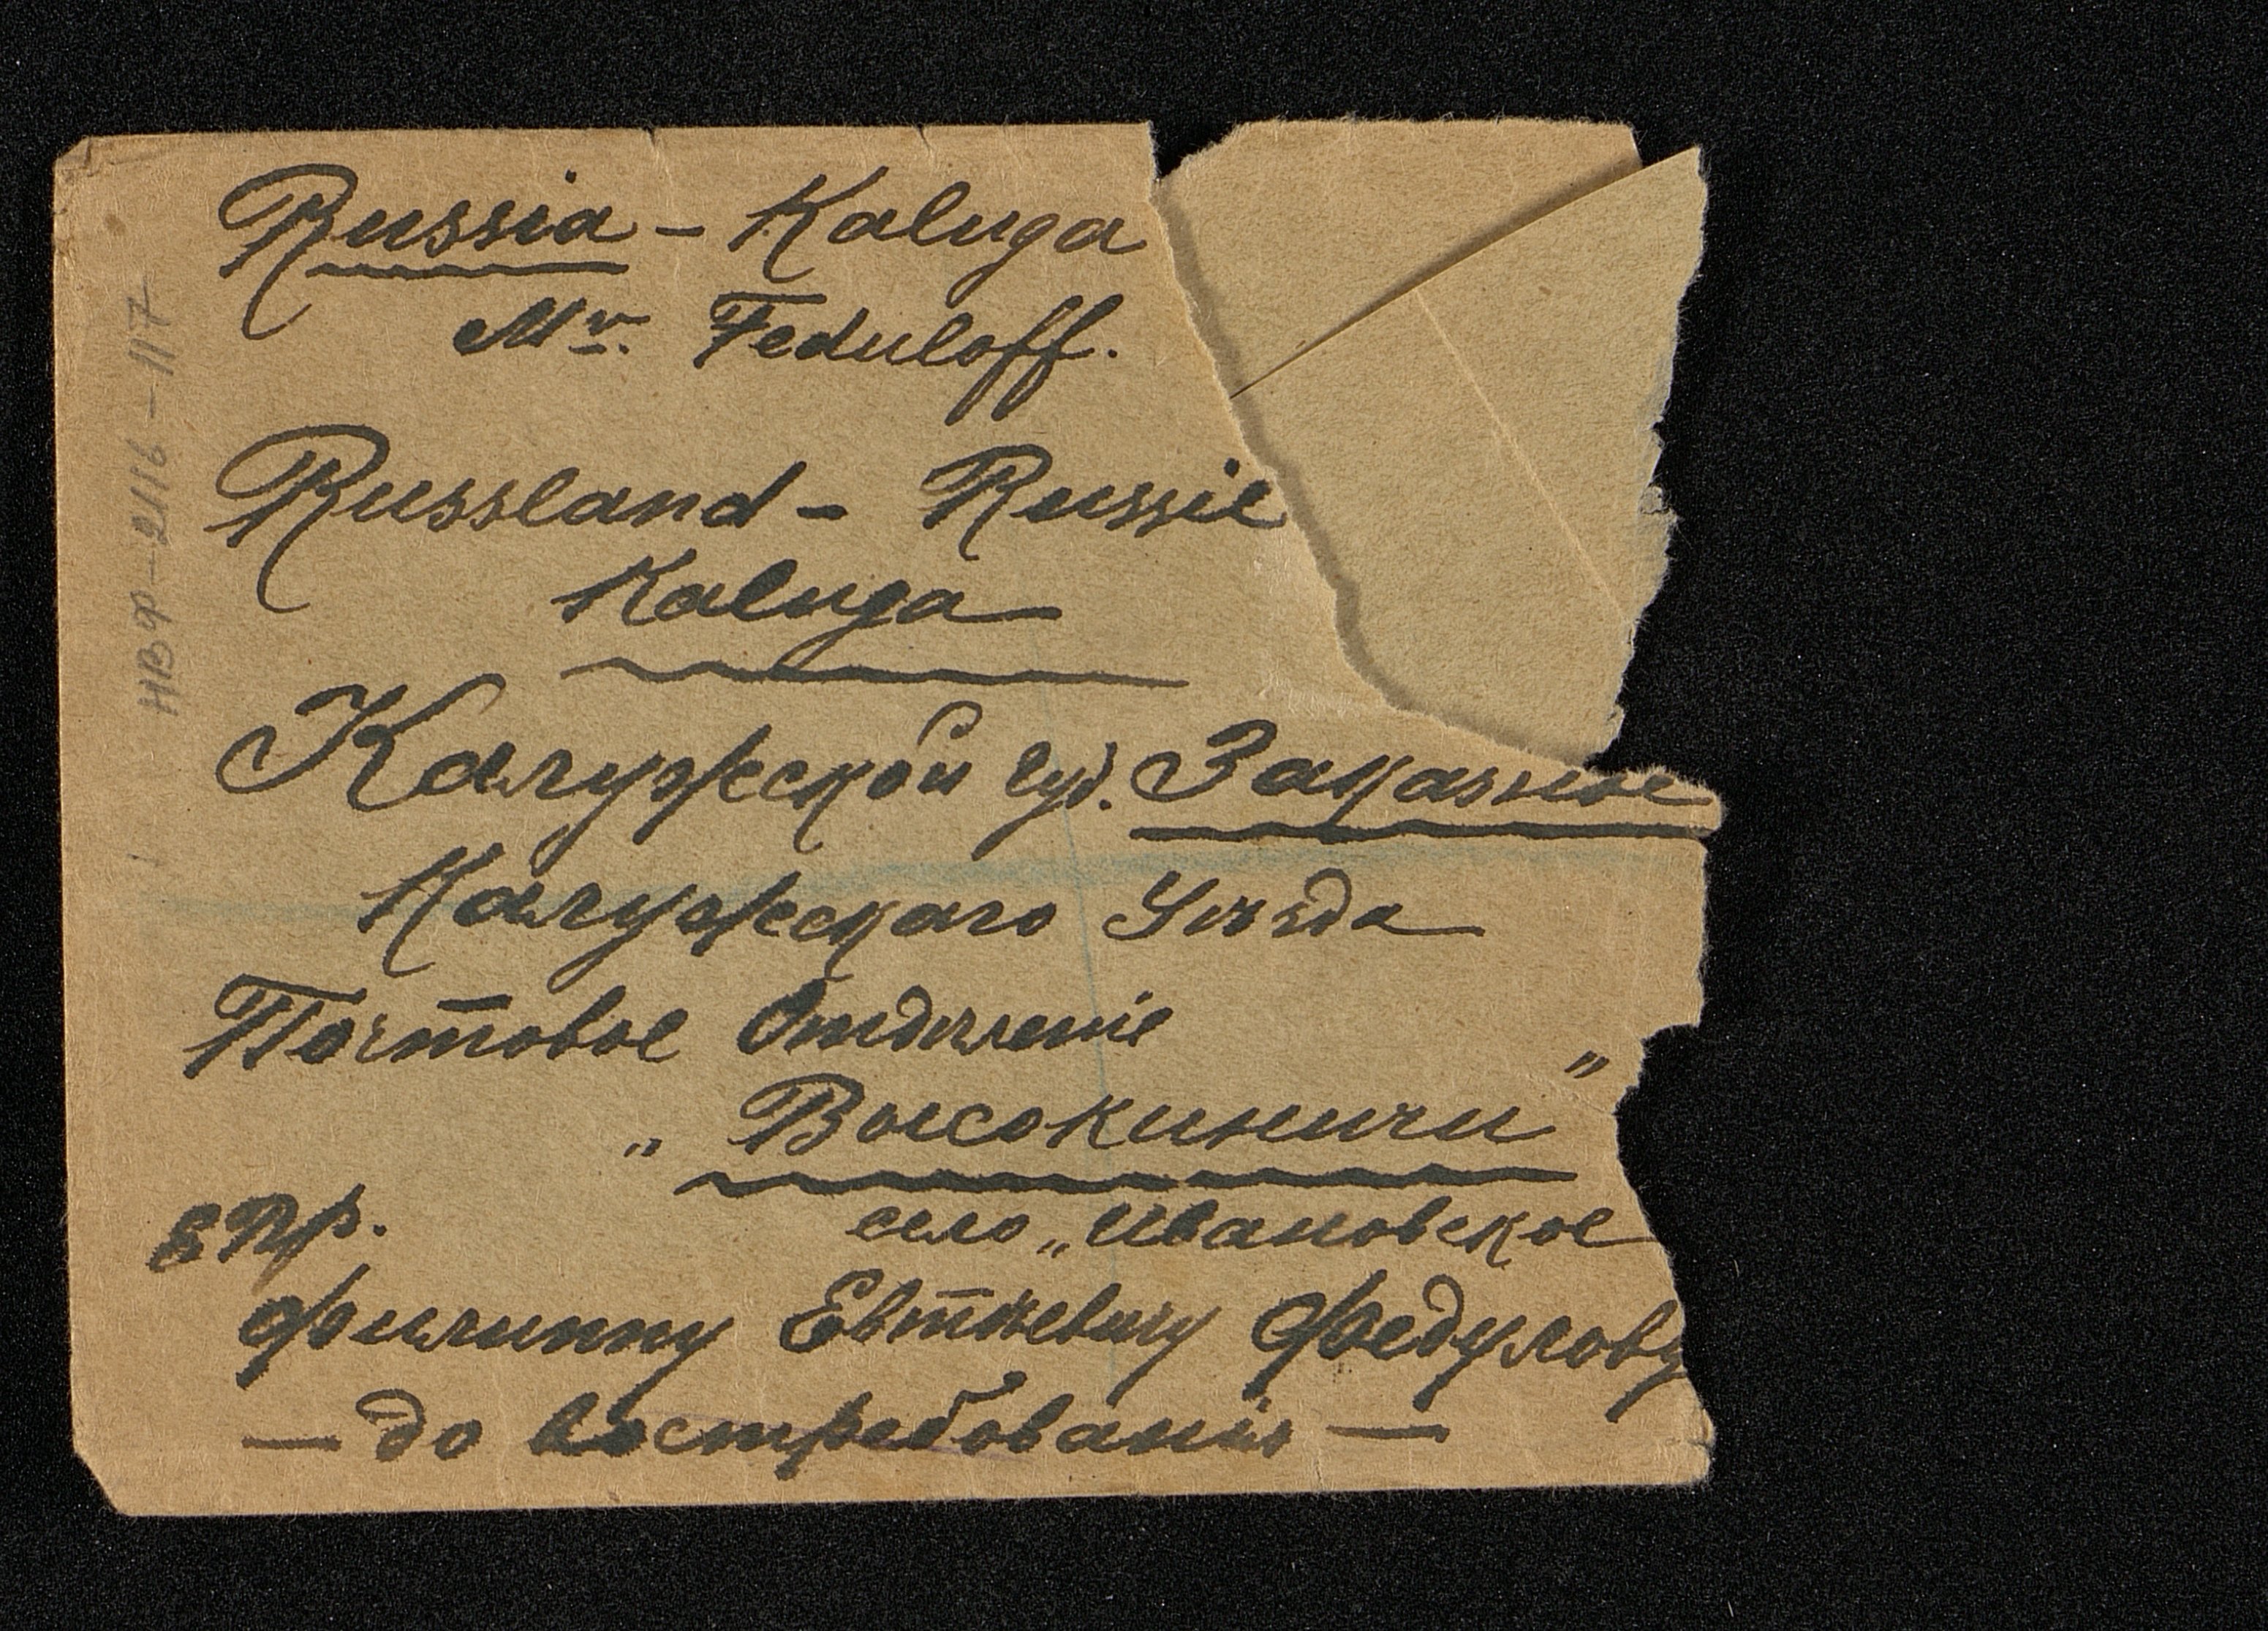 Russia - Kaluga
Mr. Feduloff.
Russland - Russie
Kaluga
Калужской губ. Заказное
Калужскаго Уѣзда
Почтовое Отдѣленіе
„ Высокиничи "
село „Ивановское
ЕПр.
Филиппу Евтѣевичу Федулову
— до востребованія —
НВФ-2116-117